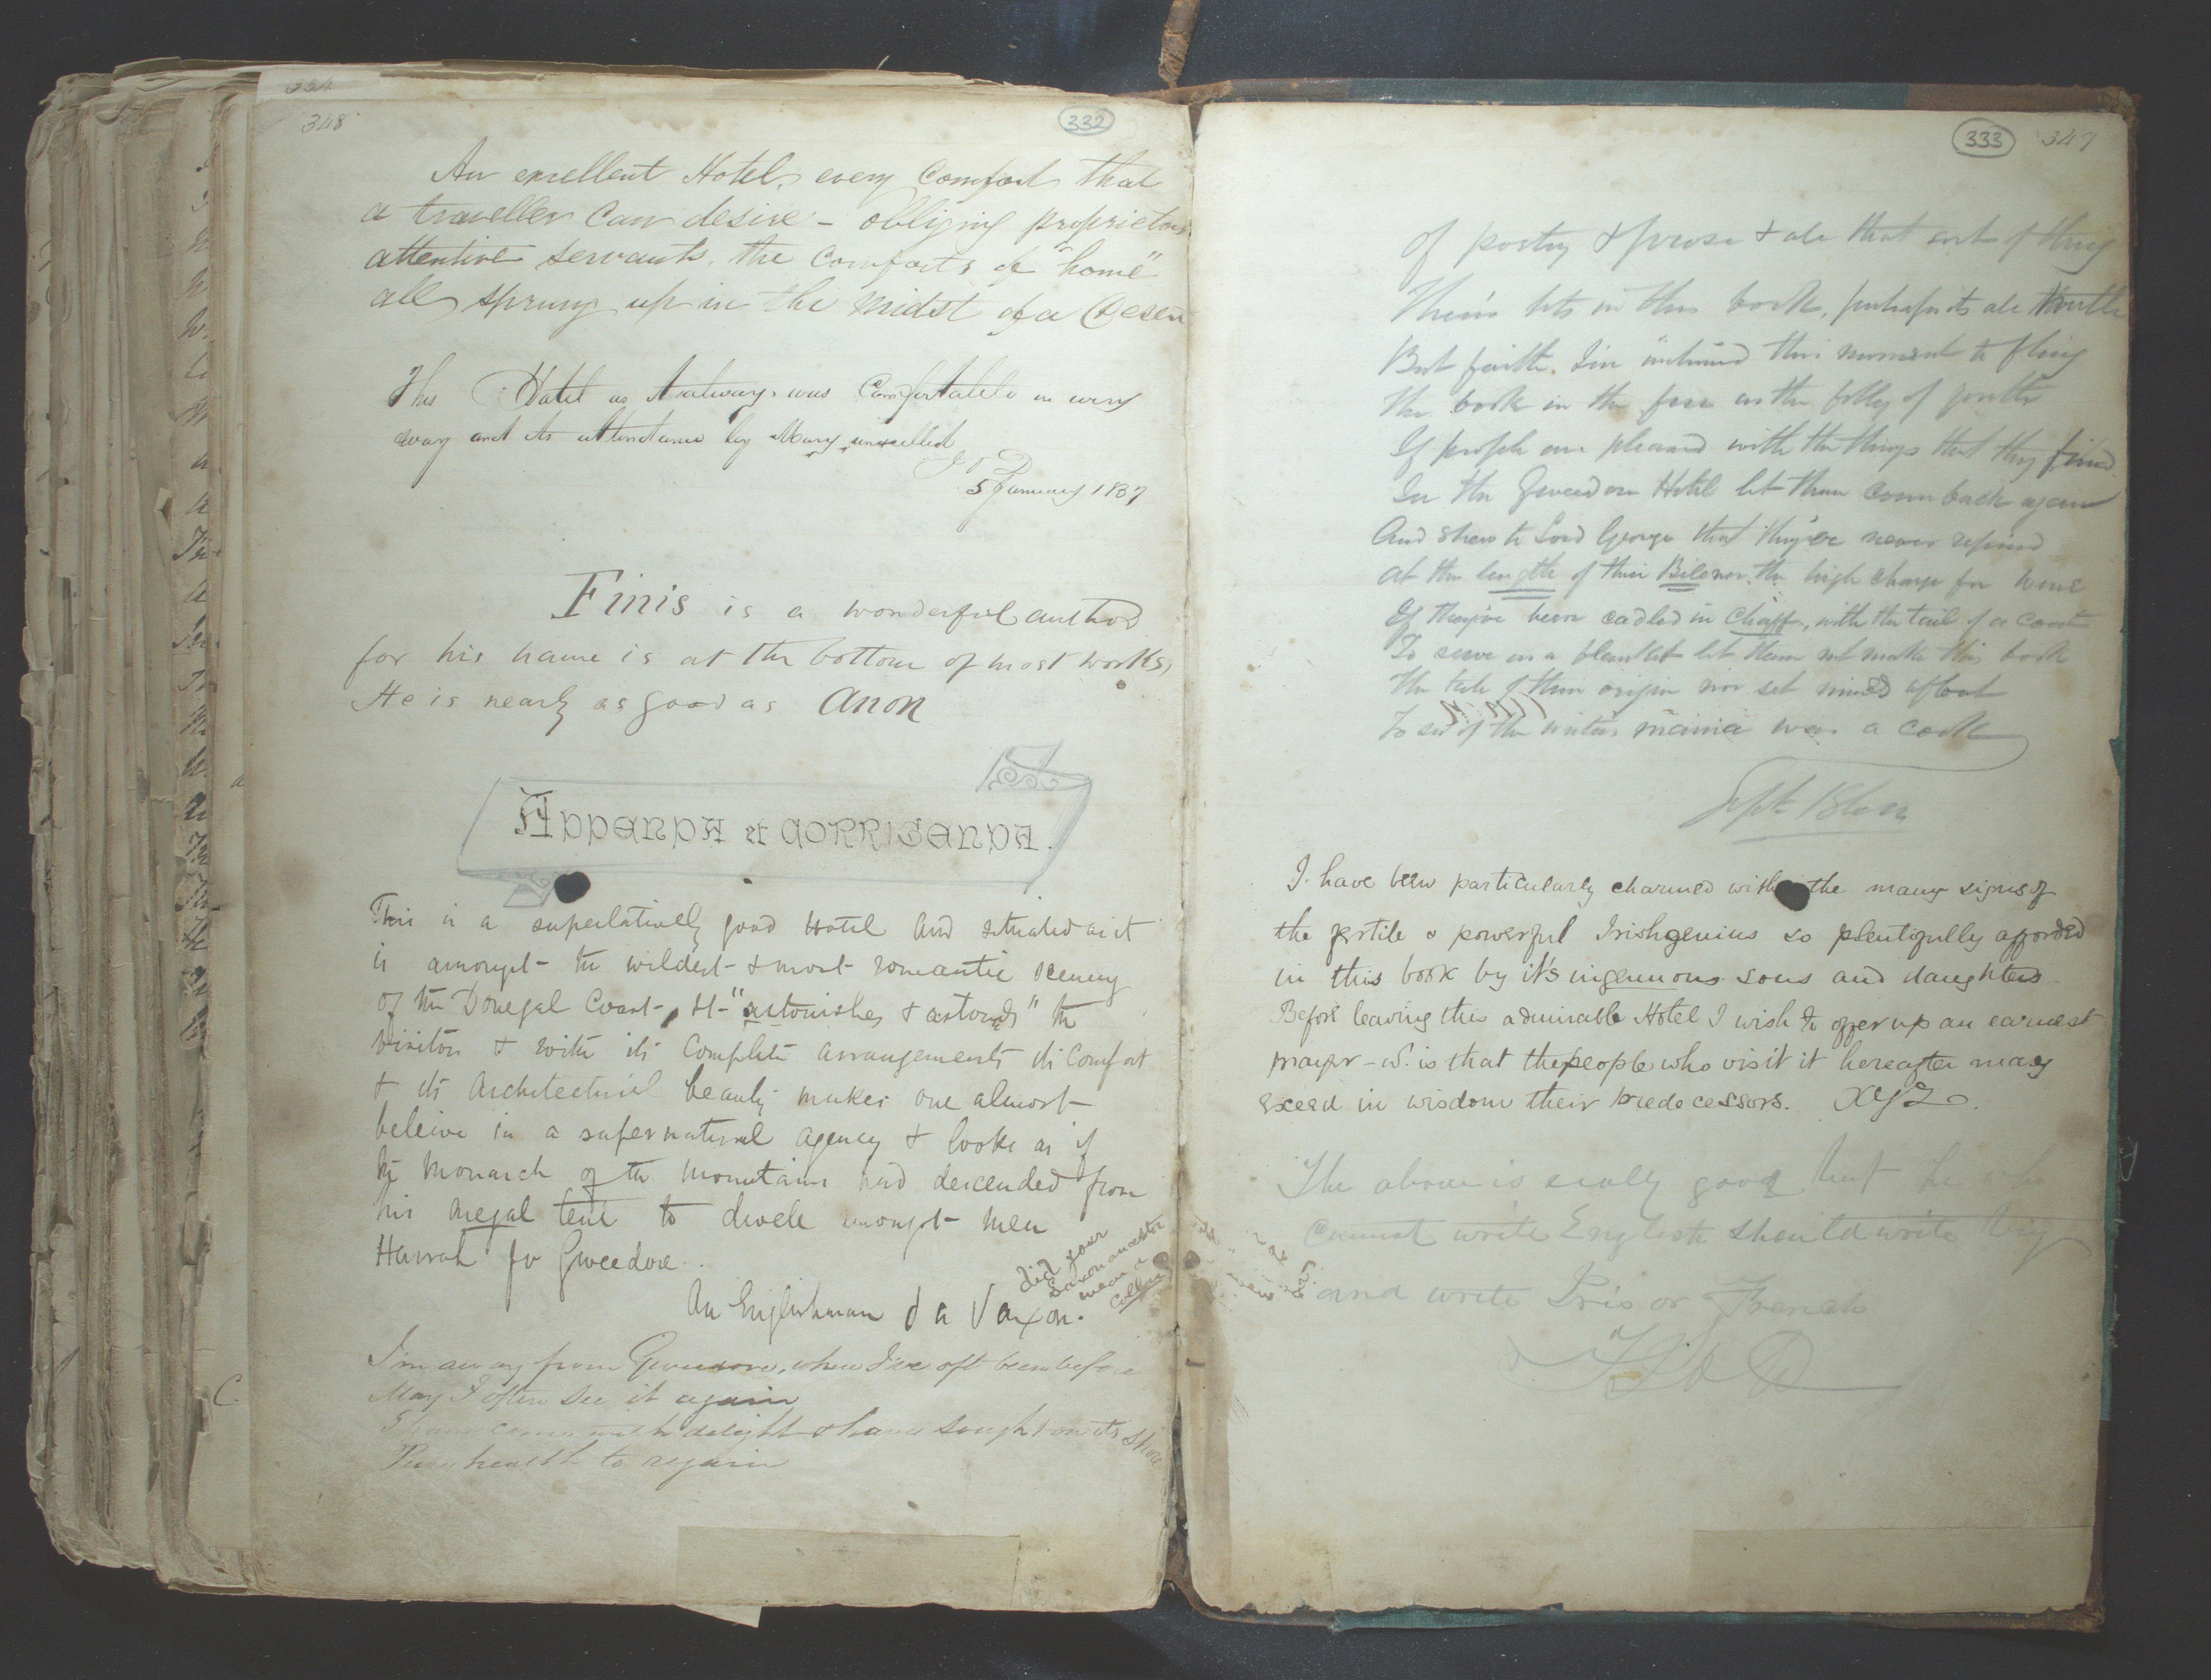 334
348
332
An excellent Hotel, every comfort that
a traveller can desire - obliging proprietor
attentive servants. the comforts of "home"
all sprung up in the midst of a Desert
This Hotel as always was comfortable in every
way and its attendance by Mary unexcelled
5 January 1857
Finis is a wonderful author
for his name is at the bottom of most works,
He is nearly as good as Anon
Addenda et Corrigenda.
This is a superlatively good Hotel and situated as it
is amongst the wildest & most romantic scenery
of the Donegal Coast, it "astonishes & astounds" the
visitor & with its complete arrangements its comfort
& its Architectural beauty makes one almost
beleive in a supernatural agency & looks as if
the Monarch of the Mountains had descended from
his regal tent to dwell amongst men
Hurrah for Gweedore.
An Englishman & a Saxon.
did your
Saxon ancestor
wear a
collar
I'm away from Gweedore, where I've oft been before
May I often see it again
I have come with delight & have sought on its shore
health to regain
333
347
Of poetry & prose & all that sort of thing
There's lots in this book, perhaps its all truth
But faith, I'm inclined this moment to fling
The book in the fire as the folly of youth
If people are pleased with the things that they find
In the Gweedore Hotel let them come back again
And shew to Lord George that they've never repined
At the length of their Bile nor the high charge for wine
If they've been cradled in chaff, with the tail of a
To serve as a blanket let them not make this book
The tale of their origin nor set minds afloat
To see if the writer's mama was a cook
Sept
I have been particularly charmed with the many signs of
the fertile & powerful Irish genius so plentifully afforded
in this book by it's ingenuous sons and daughters
Before leaving this admirable Hotel I wish to offer up an earnest
prayer - w. is that the people who visit it hereafter may
exceed in wisdom their predecessors. XYZ.
The above is really good but he who
cannot write English should write
and write Iris or French